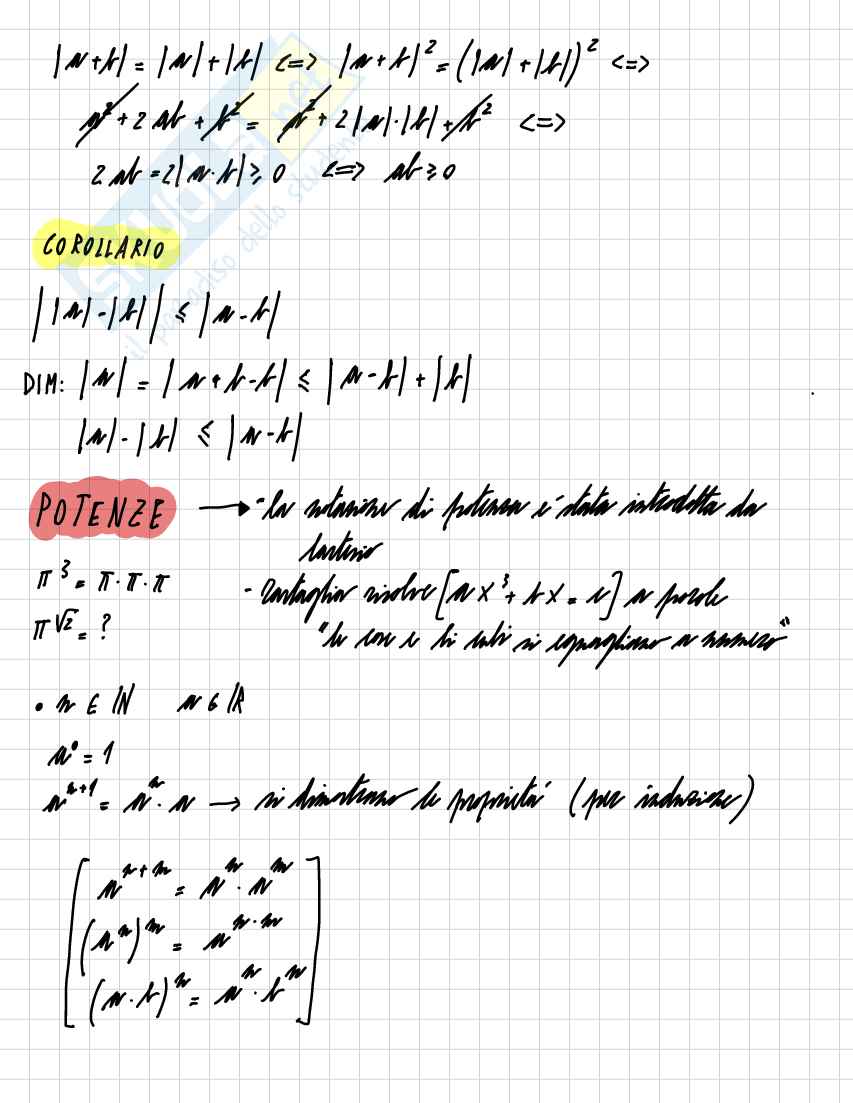 |a+b| = |a|+|b| <=> |a+b|² = (|a|+|b|)² <=>
a²+2ab+b² = a²+2|a|·|b|+b² <=>
2ab = 2|a·b| ≥ 0 <=> ab ≥ 0
COROLLARIO
||a|-|b|| ≤ |a-b|
DIM: |a| = |a+b-b| ≤ |a-b|+|b|
|a|-|b| ≤ |a-b|
POTENZE → - la notazione di potenza e' stata introdotta da
Cartesio
π³ = π·π·π
- Tartaglia risolve [ax³+bx=c] a parole
π^√2 = ?
"le cose e li cubi si eguagliano a numero"
• n ∈ IN a ∈ IR
a⁰ = 1
a^(n+1) = a^n · a → si dimostrano le proprietà (per induzione)
a^(n+m) = a^n · a^m
(a^n)^m = a^(n·m)
(a·b)^n = a^n · b^n
SKUOLA.net
il paradiso dello studente